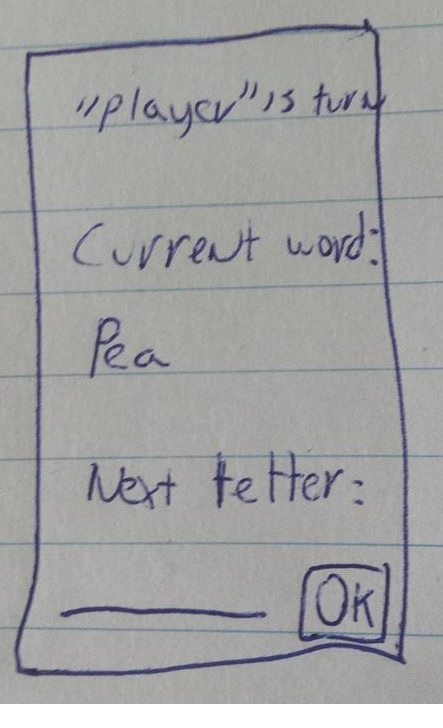 "player"is turn
Current word:
Pea
Next letter:
OK